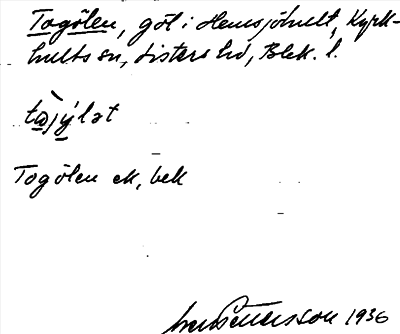 Togölen, göl i Hemsjöhult, Kyrk-
hults sn, Listers hd, Blek. l.
tàjýlət
Togölen ek, bek
Pettersson 1936